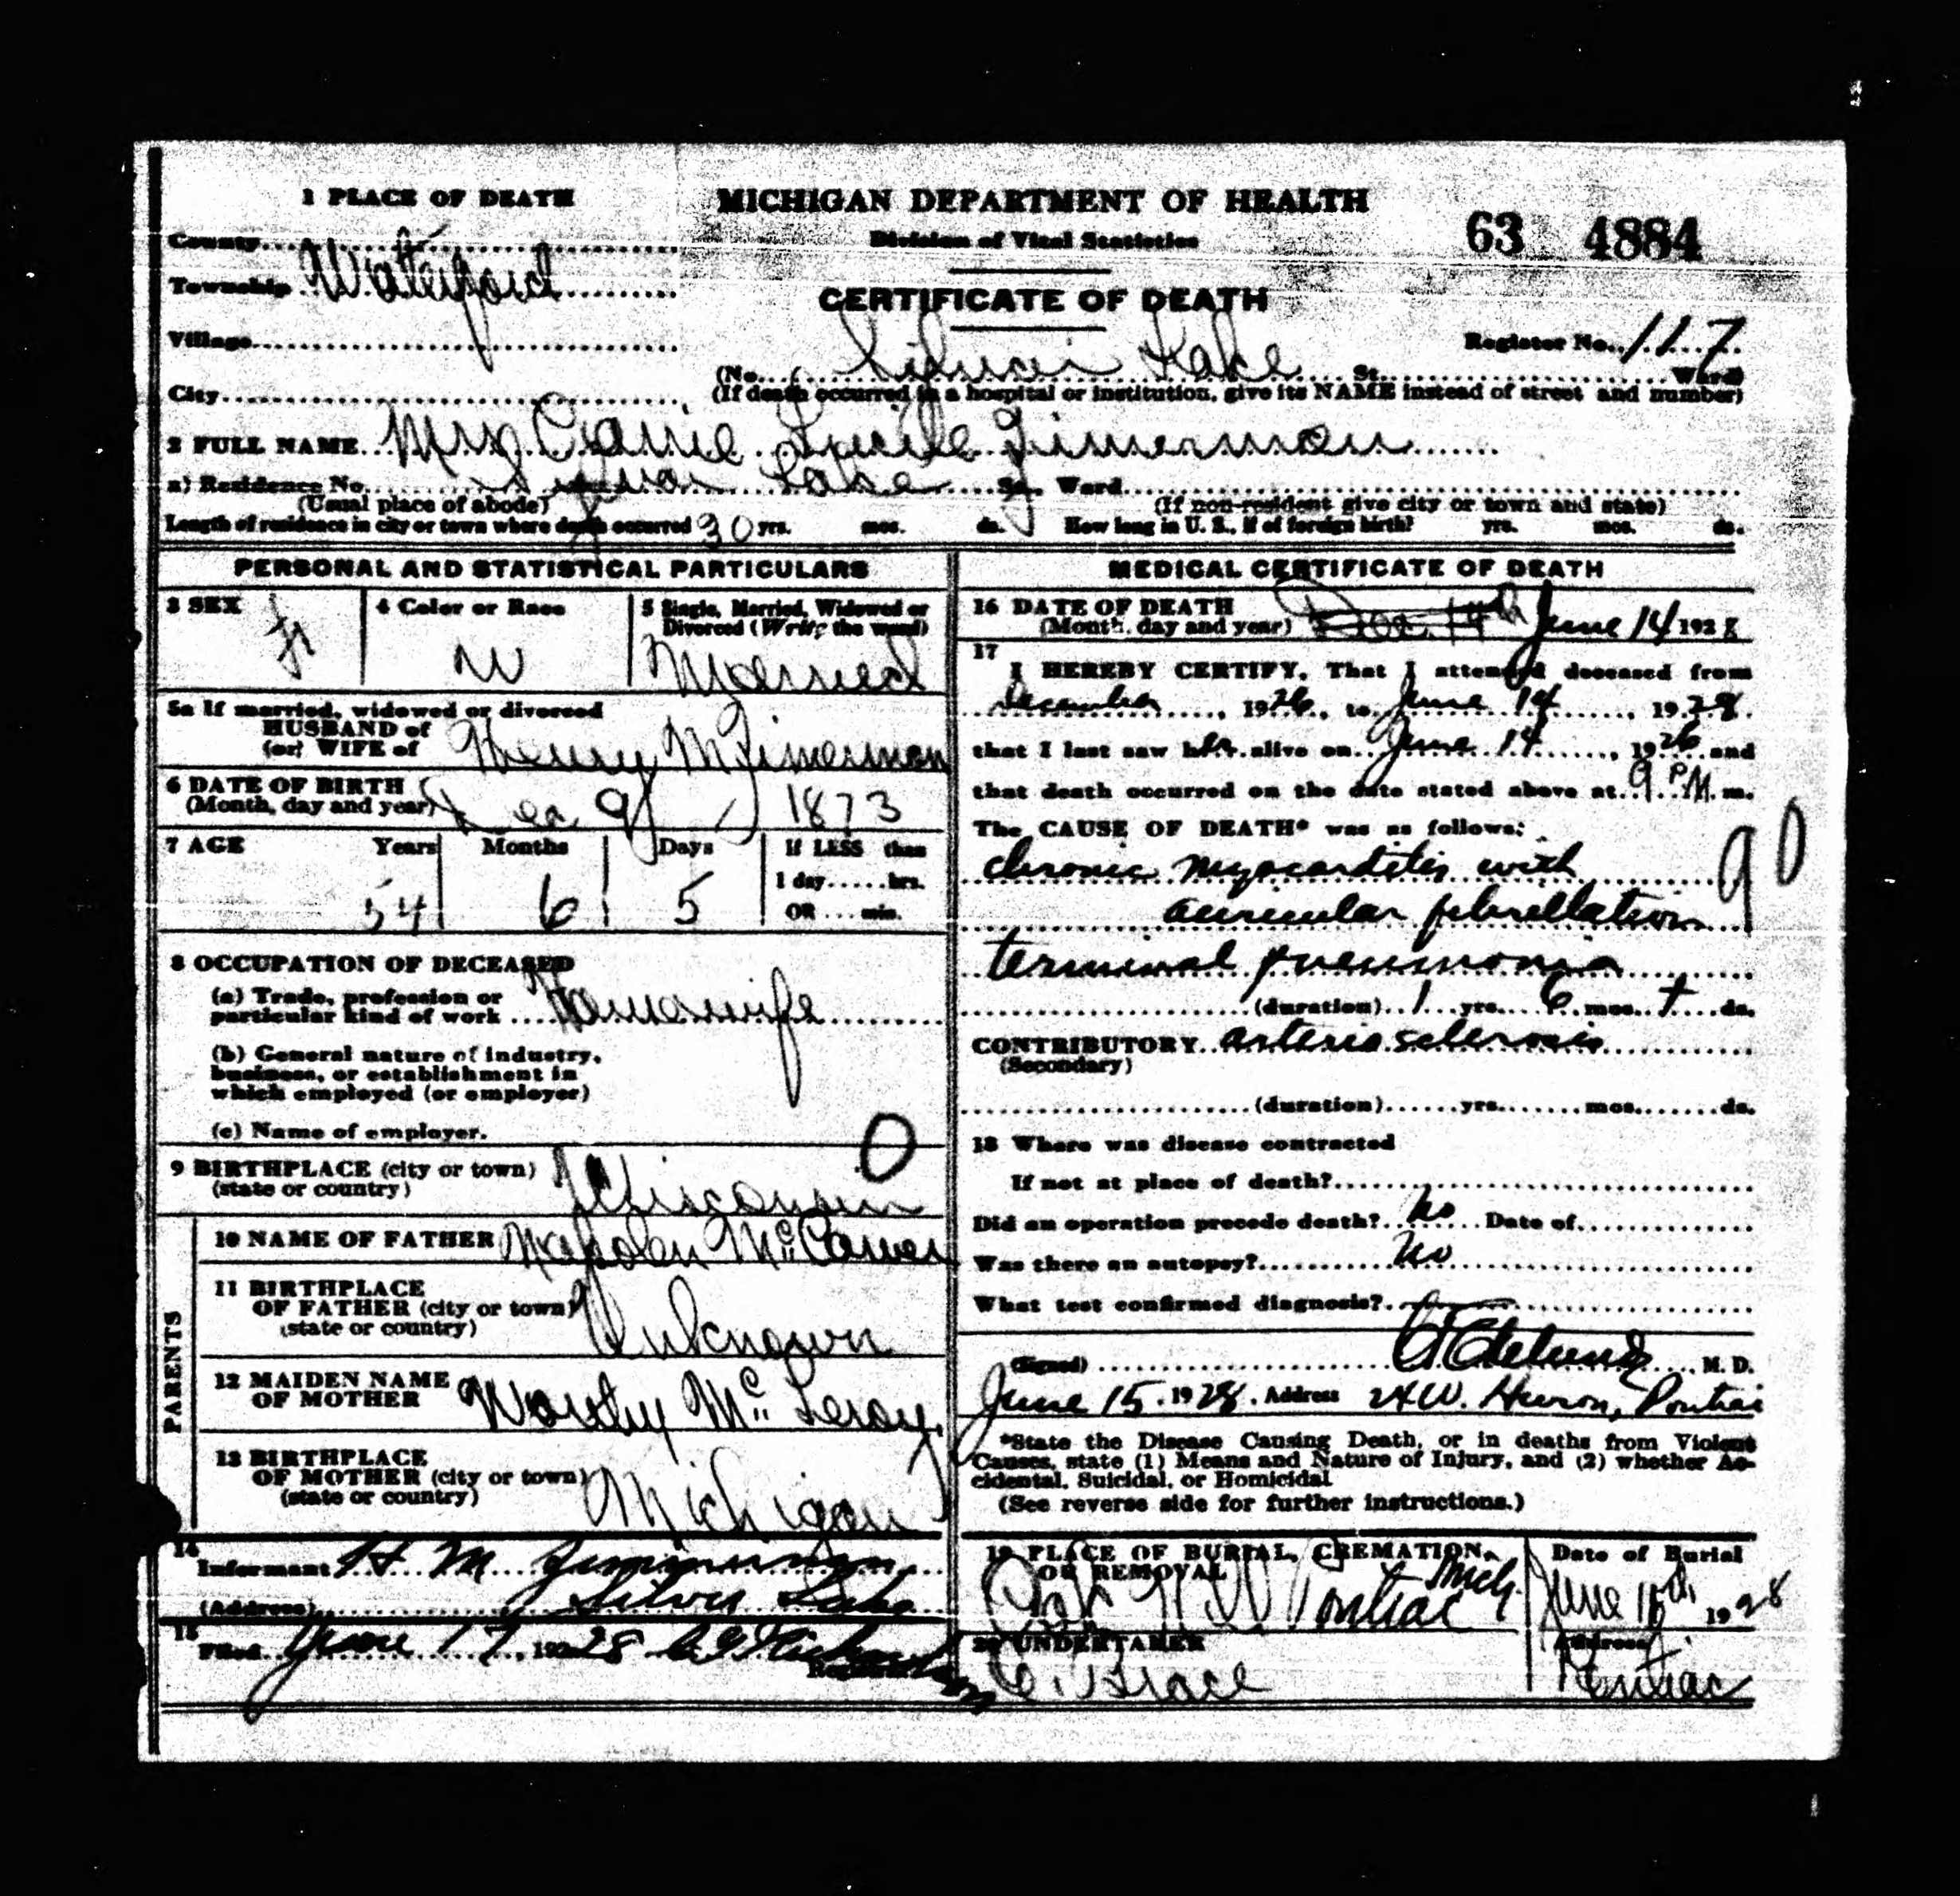 1 PLACE OF DEATH
County
Township Waterford
Village
City
MICHIGAN DEPARTMENT OF HEALTH
Division of Vital Statistics
CERTIFICATE OF DEATH
63 4884
Register No. 117
(No. Silver Lake St. Ward)
(If death occurred in a hospital or institution, give its NAME instead of street and number)
2 FULL NAME Mrs Carrie Lucile Zimerman
a) Residence No. Silver Lake St. Ward
(Usual place of abode) (If non-resident give city or town and state)
Length of residence in city or town where death occurred 30 yrs. mos. ds. How long in U. S., if of foreign birth? yrs. mos. ds.
PERSONAL AND STATISTICAL PARTICULARS
3 SEX 4 Color or Race 5 Single, Married, Widowed or
Divorced (Write the word)
F W Married
5a If married, widowed or divorced
HUSBAND of
(or) WIFE of Henry M Zimerman
6 DATE OF BIRTH
(Month, day and year) Dec 9 1873
7 AGE Years Months Days If LESS than
1 day hrs.
54 6 5 OR min.
8 OCCUPATION OF DECEASED
(a) Trade, profession or
particular kind of work Housewife
(b) General nature of industry,
business, or establishment in
which employed (or employer)
(c) Name of employer.
0
9 BIRTHPLACE (city or town)
(state or country) Wisconsin
PARENTS
10 NAME OF FATHER
11 BIRTHPLACE
OF FATHER (city or town)
(state or country) Unknown
12 MAIDEN NAME
OF MOTHER Mc Leroy
13 BIRTHPLACE
OF MOTHER (city or town)
(state or country) Michigan
14
Informant H M Zimmerman
(Address) Silver Lake
15
Filed June 17, 1928
MEDICAL CERTIFICATE OF DEATH
16 DATE OF DEATH
(Month, day and year) Dec. 14th June 14 1928
17
I HEREBY CERTIFY, That I attended deceased from
December, 1926, to June 14, 1928.
that I last saw her alive on June 14, 1926 and
that death occurred on the date stated above at 9 P.M. m.
The CAUSE OF DEATH* was as follows:
chronic myocarditis with
auricular fibrellation
90
terminal pneumonia
(duration) 1 yrs. 6 mos. + ds.
CONTRIBUTORY arterio sclerosis
(Secondary)
(duration) yrs. mos. ds.
18 Where was disease contracted
If not at place of death?
Did an operation precede death? No Date of
Was there an autopsy? No
What test confirmed diagnosis?
(Signed) M. D.
June 15, 1928, Address 24 W. Huron, Pontiac
*State the Disease Causing Death, or in deaths from Violent
Causes, state (1) Means and Nature of Injury, and (2) whether Ac-
cidental, Suicidal, or Homicidal
(See reverse side for further instructions.)
19 PLACE OF BURIAL, CREMATION,
OR REMOVAL
Pontiac Mich.
Date of Burial
June 1928
20 UNDERTAKER
Address
Pontiac